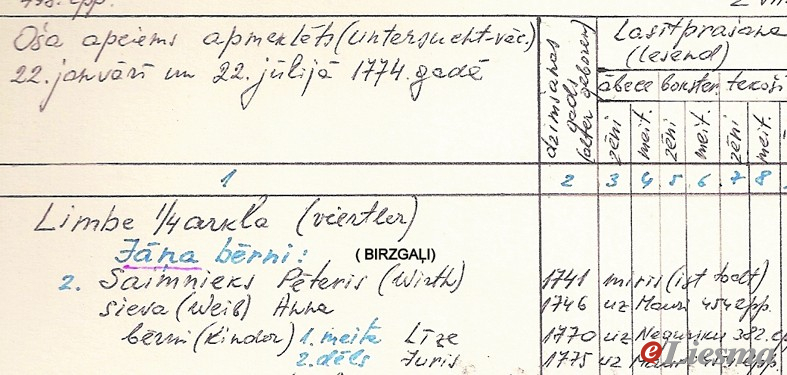 Oša apciems apmeklēts (untersucht-vāc.)
22. janvārī un 22. jūlijā 1774. gadā
dzimšanas gads (alter geboren)
Lasītprašana (lesend)
ābece bokster. tekoši
zēni meit. zēni meit. zēni meit.
1 2 3 4 5 6 7 8
Limbe 1/4 arkla (viertler)
Jāņa bērni: ( BIRZGAĻI)
2. Saimnieks Pēteris (Wirth) 1741 miris (ist todt)
sieva (Weib) Anna 1746 uz Mauri 454 lpp.
bērni (Kinder) 1. meita Līze 1770 uz 382.
2. dēls Juris 1775 uz lpp.
eLiesma